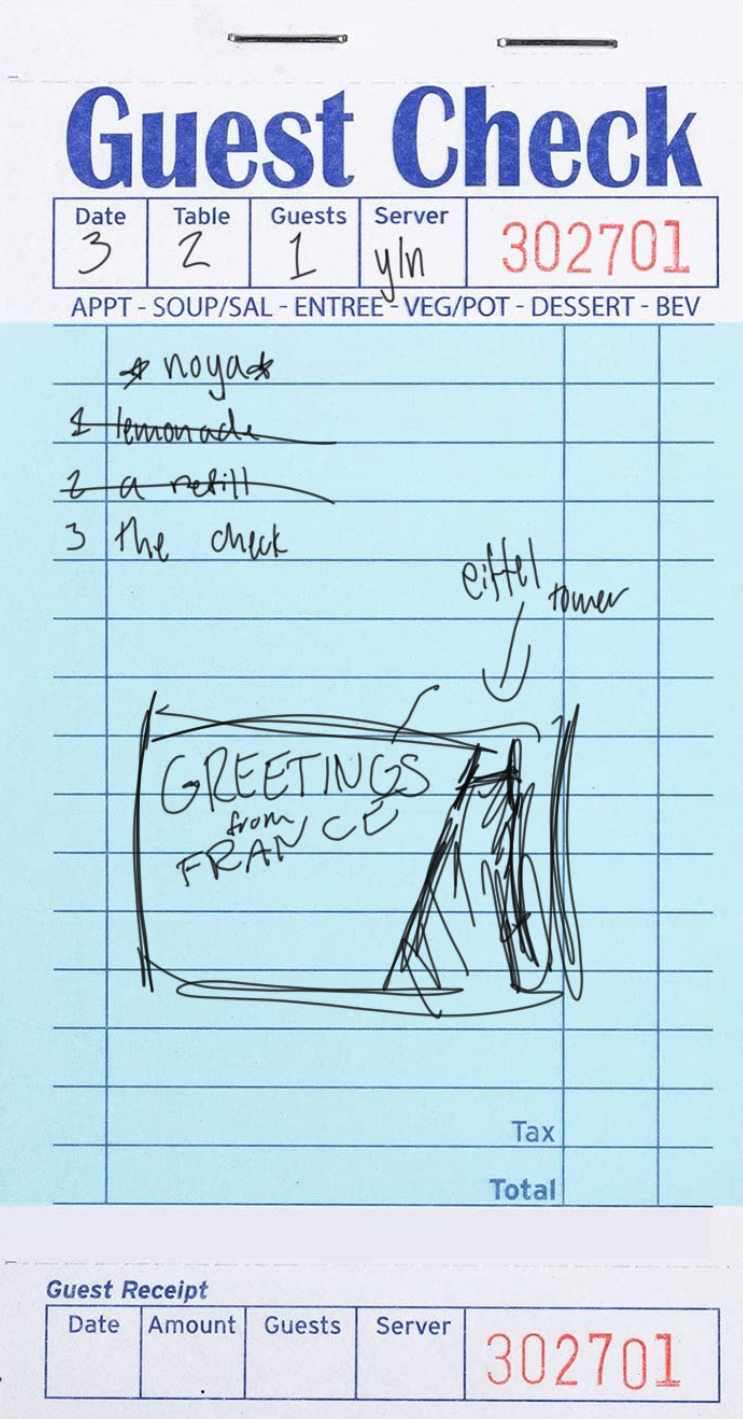 Guest Check
Date Table Guests Server
3 2 1 y/n 302701
APPT - SOUP/SAL - ENTREE - VEG/POT - DESSERT - BEV
noya
1 lemonade
2 a refill
3 the check
eiffel tower
GREETINGS
from
FRANCE
Tax
Total
Guest Receipt
Date Amount Guests Server
302701